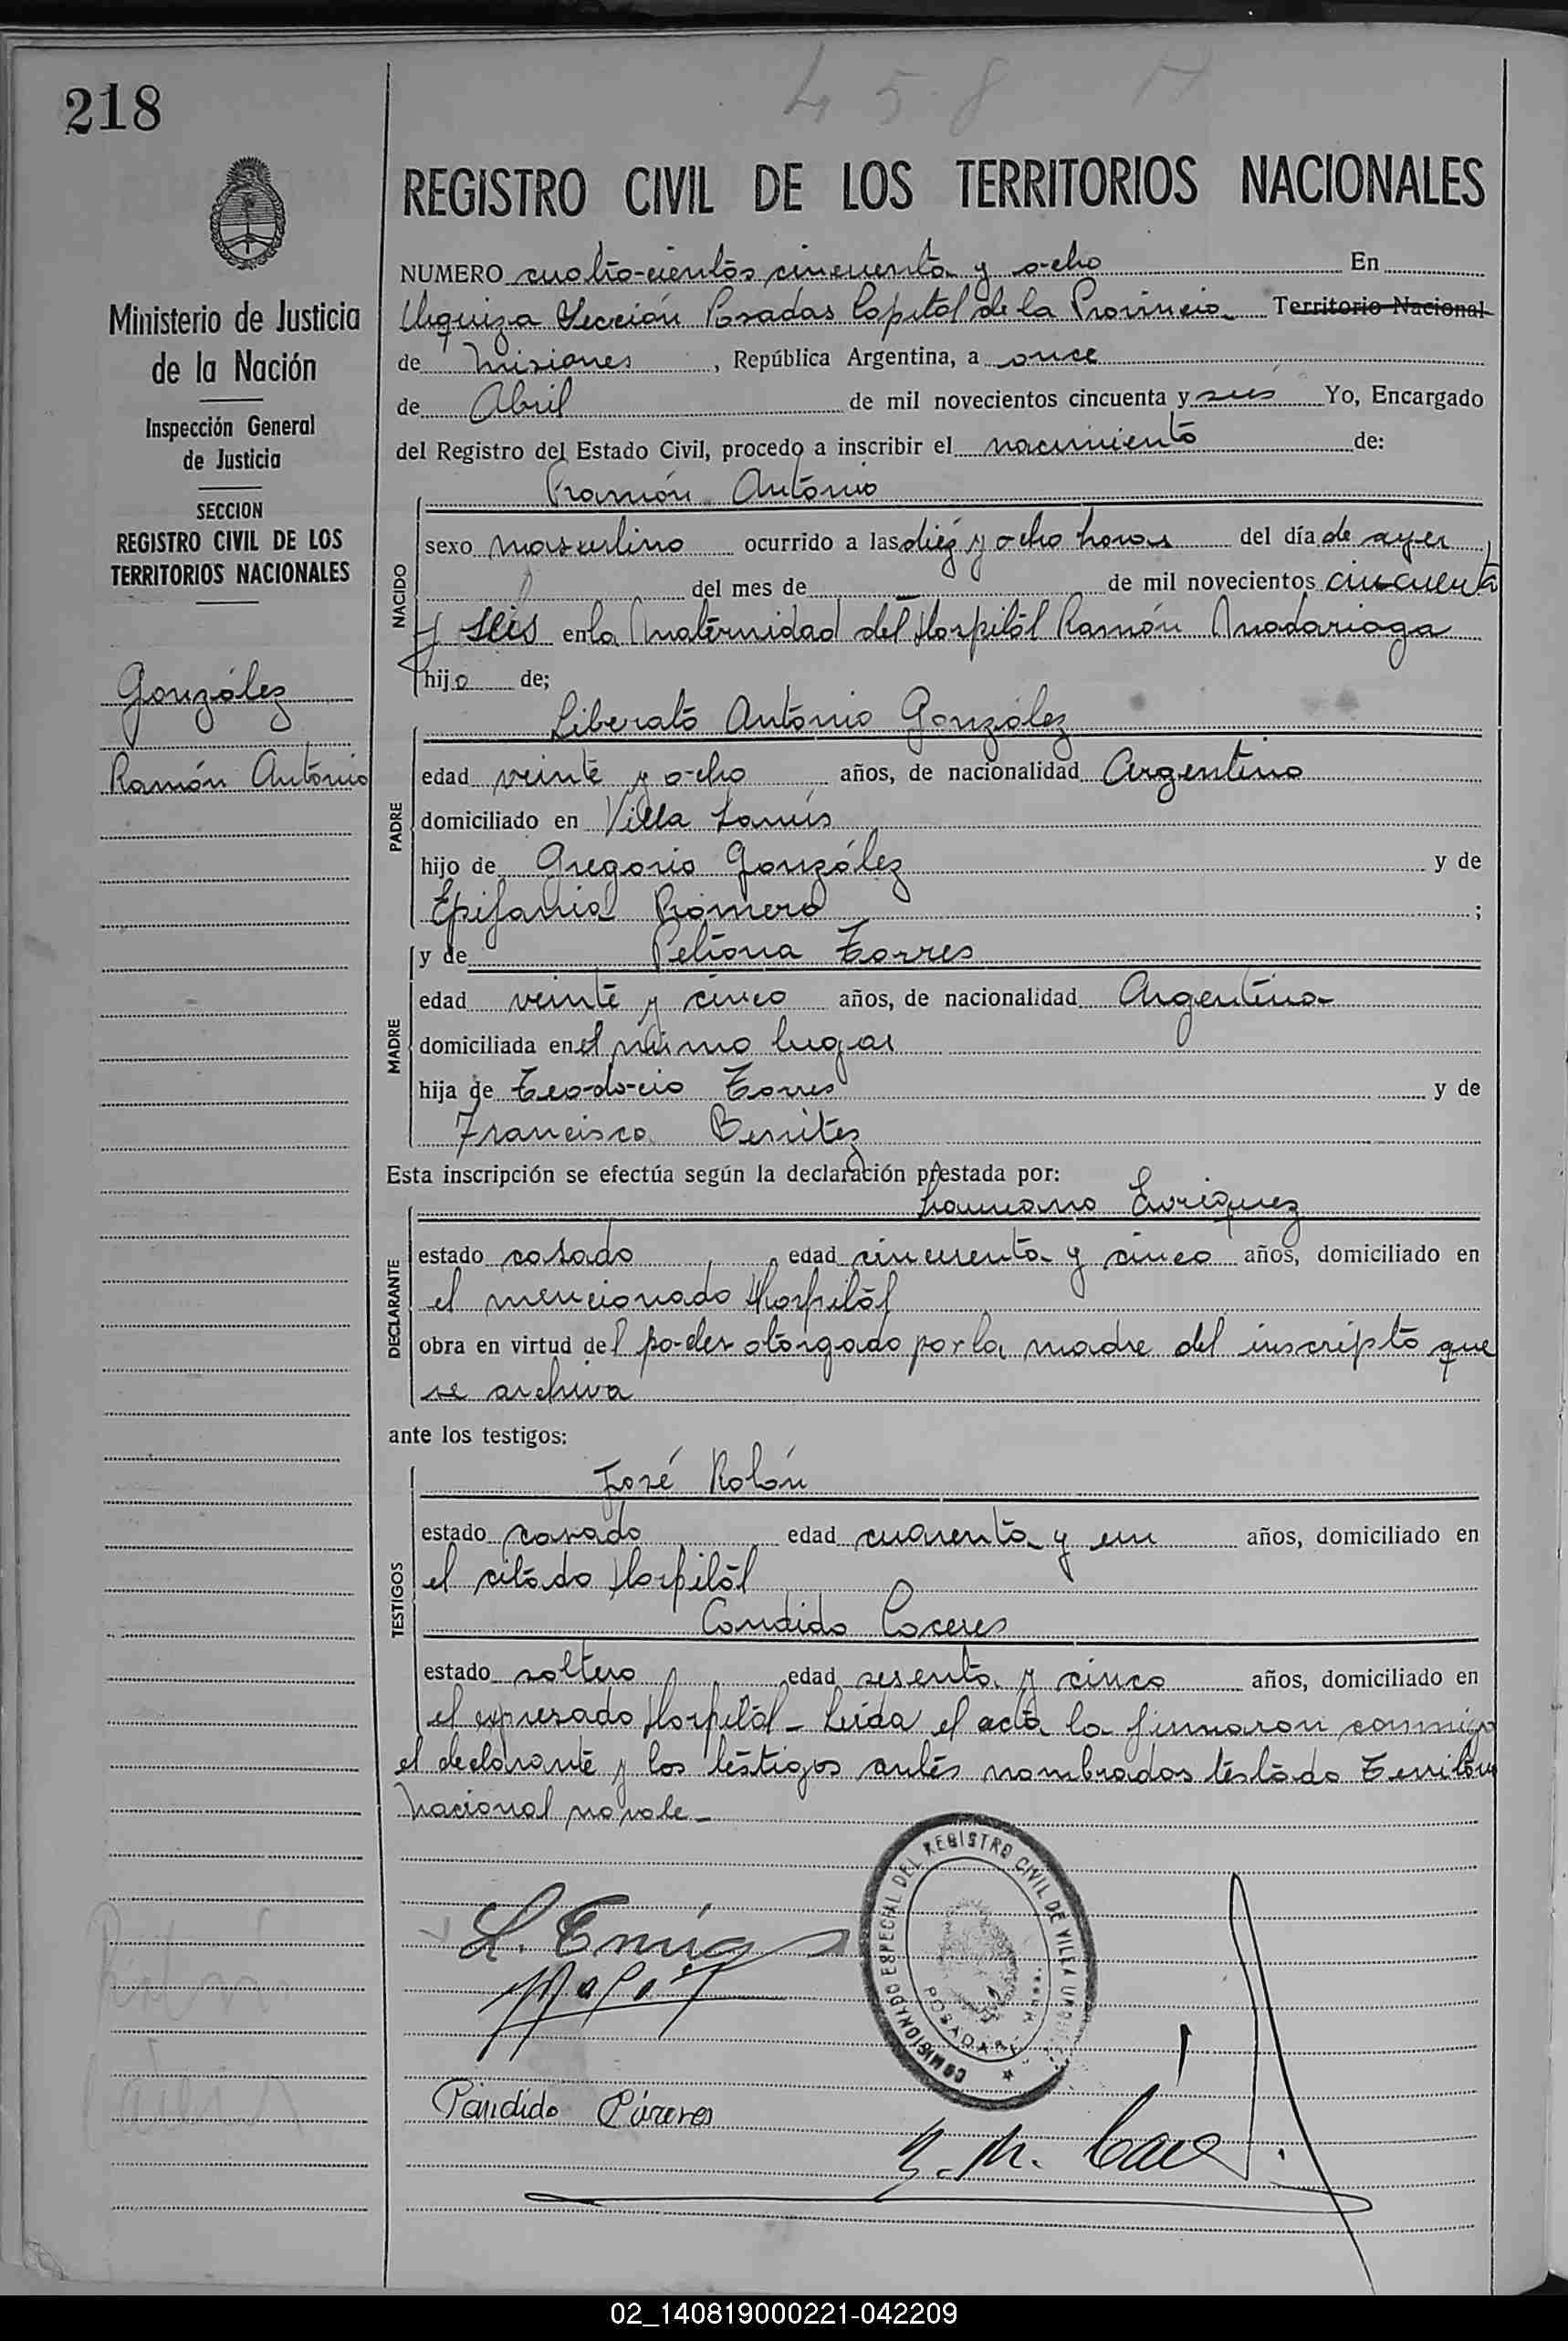 218
458
REGISTRO CIVIL DE LOS TERRITORIOS NACIONALES
Ministerio de Justicia
de la Nación
Inspección General
de Justicia
SECCION
REGISTRO CIVIL DE LOS
TERRITORIOS NACIONALES
González
Ramón Antonio
NUMERO cuatro-cientos cincuenta y ocho En
Urquiza Sección Posadas Capital de la Provincia Territorio Nacional
de Misiones, República Argentina, a once
de Abril de mil novecientos cincuenta y seis Yo, Encargado
del Registro del Estado Civil, procedo a inscribir el nacimiento de:
NACIDO
Ramón Antonio
sexo masculino ocurrido a las diez y ocho horas del día de ayer
del mes de de mil novecientos cincuenta
y seis en la Maternidad del Hospital Ramón Madariaga
hijo de;
PADRE
Liberato Antonio González
edad veinte y ocho años, de nacionalidad Argentino
domiciliado en Villa Lanús
hijo de Gregorio González y de
Epifania Romero;
MADRE
y de Petrona Torres
edad veinte y cinco años, de nacionalidad Argentina
domiciliada en el mismo lugar
hija de Teodocio Torres y de
Francisca Benitez
Esta inscripción se efectúa según la declaración prestada por:
DECLARANTE
Enriquez
estado casado edad cincuenta y cinco años, domiciliado en
el mencionado Hospital
obra en virtud del poder otorgado por la madre del inscripto que
se archiva
ante los testigos:
TESTIGOS
José Rolón
estado casado edad cuarenta y un años, domiciliado en
el citado Hospital
Candido Caceres
estado soltero edad sesenta y cinco años, domiciliado en
el expresado Hospital - Leida el acta la firmaron conmigo
el declarante y los testigos antes nombrados testado Territorio
Nacional no vale -
COMISIONADO ESPECIAL DEL REGISTRO CIVIL DE VILLA
POSADAS
Cándido Cáceres
02_140819000221-042209